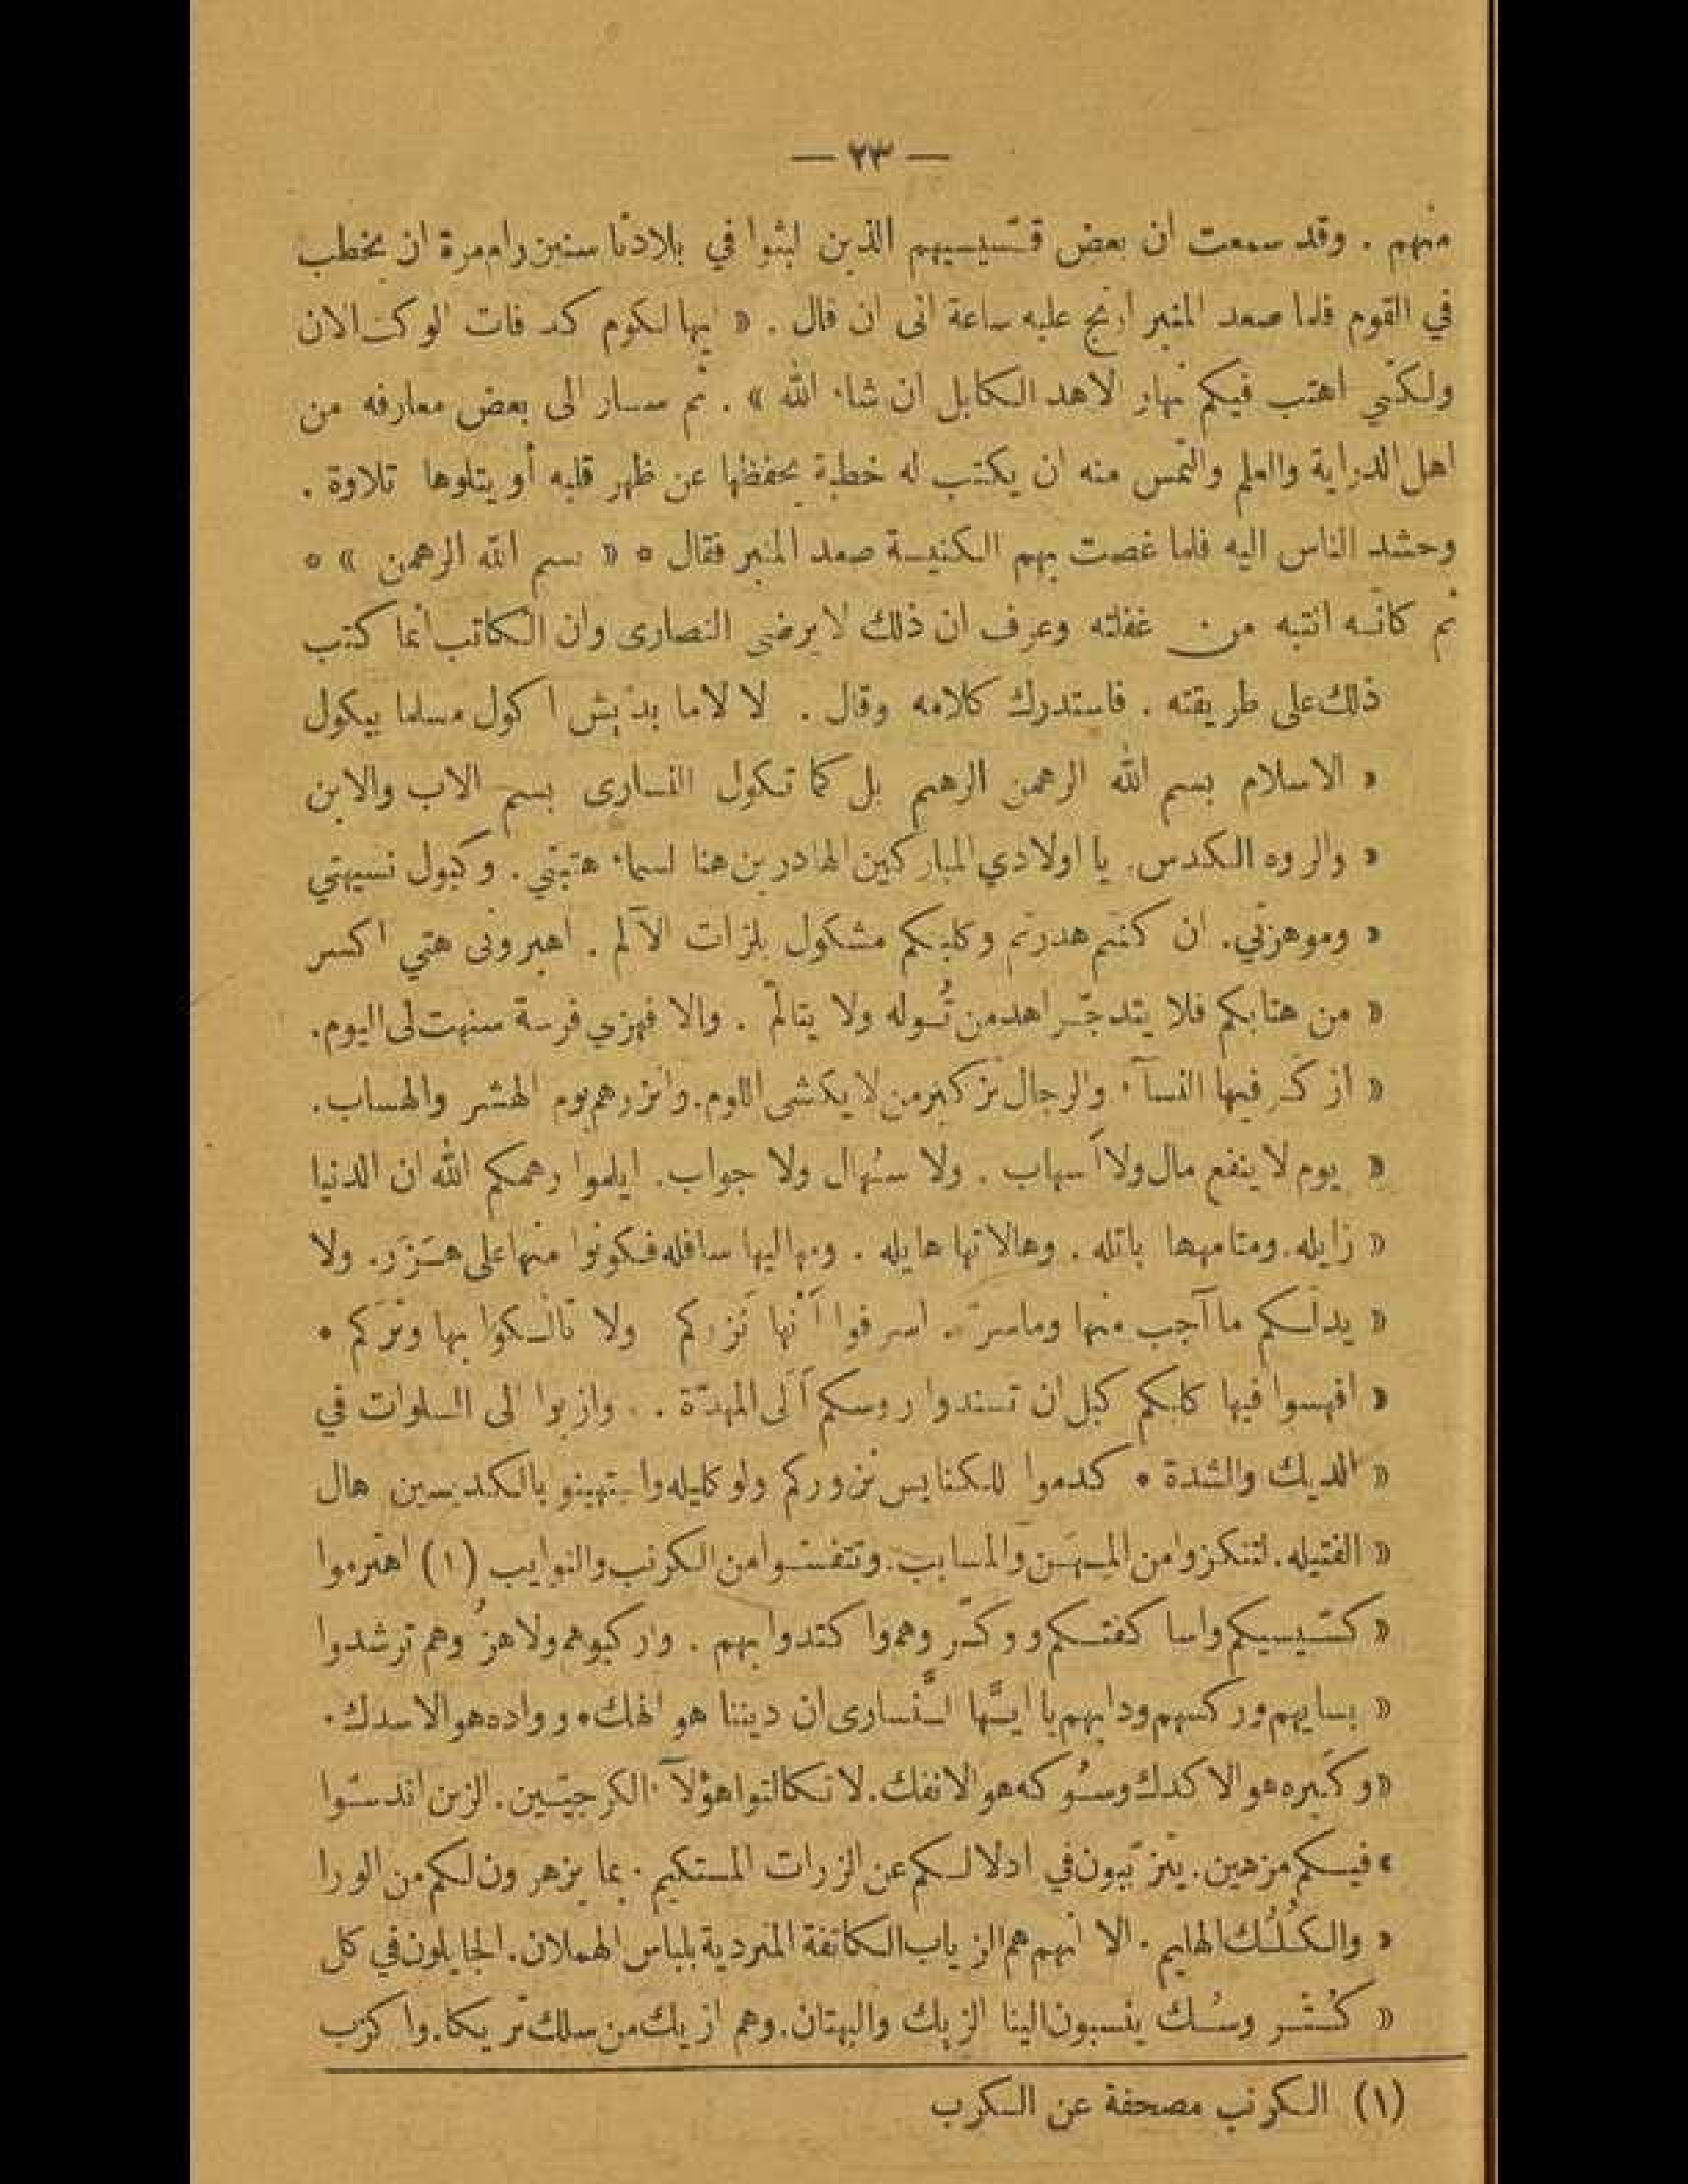 — ٢٣ —
منهم . وقد سمعت ان بعض قسّيسيهم الذين لبثوا في بلادنا سنين رام مرة ان يخطب
في القوم فلما صعد المنبر ارتج عليه ساعة الى ان قال . « ايها الكوم كد فات الوكت الان
ولكنّي اهتب فيكم نهار الاهد الكابل ان شاء الله » . ثم سار الى بعض معارفه من
اهل الدراية والعلم والتمس منه ان يكتب له خطبة يحفظها عن ظهر قلبه أو يتلوها تلاوة .
وحشد الناس اليه فلما غصت بهم الكنيسة صعد المنبر فقال ٥ « بسم الله الرهمن » ٥
ثم كانّه انتبه من غفلته وعرف ان ذلك لا يرضي النصارى وان الكاتب انما كتب
ذلك على طريقته . فاستدرك كلامه وقال . لا لا ما بدّيش اكول مسلما بيكول
« الاسلام بسم الله الرهمن الرهيم بل كما تكول النسارى بسم الاب والابن
« والروه الكدس . يا اولادي المباركين الهادرين هنا لسماء هتبتي . وكبول نسيهتي
« وموهزتي . ان كنتم هدرتم وكلبكم مشكول بلزات الآلم . اهبرونى هتي اكسر
« من هتابكم فلا يتدجّر اهد من تُوله ولا يتالّم . والا فهزي فرسة سنهت لى اليوم .
« ازكر فيها النسآء والرجال تزكير من لا يكشى اللوم . وانزرهم يوم الهشر والهساب .
« يوم لا ينفع مال ولا اَسهاب . ولا سئوال ولا جواب . ايلموا رهمكم الله ان الدنيا
« زايله . ومتامهها باتله . وهالاتها هايله . ومهاليها سافله فكونوا منها على هَزَر . ولا
« يدلّكم ما آجب منها وما سرّ . اسرفوا اَنْها نَزركم ولا تالّكوا بها وتركم *
« افهسوا فيها كلبكم كبل ان تسندوا روسكم اَلَى المهدّة . وازبوا الى السلوات في
« الديك والشدة * كدموا للكنايس نزوركم ولو كليله واستهينو بالكديسين هال
« الفتيله . لتنكزوا من المِهَن والمسايب . وتتفسّوا من الكرنب والنوايب (١) اهترموا
« كسّيسيكم واساكفتكم ووكّروهم واكتدوا بهم . واركبوهم ولاهزُوهم ترشدوا
« بسايهم وركسهم ودابهم يا ايّها النّسارى ان ديننا هو الهك * ورواده هو الاسدك .
« وكَبره هو الاكدك وسوكه هو الانفك . لا تكالتوا هؤلآء الكرجيّين . الزين اندسّوا
« فيكم مزهين . يتزبّبون في ادلالكم عن الزرات المستكيم . بما يزهرون لكم من الورا
« والكُلُك الهليم . الا انهم هم الزياب الكاتفة المتردية بلباس الهملان . الجايلون في كل
« كُتْر وسُك ينسبون الينا الزيك والبهتان . وهم ازيك من سلك تريكا . واكزب
(١) الكرنب مصحفة عن الكرب